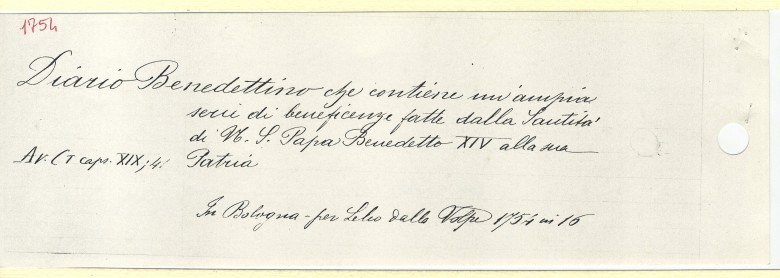 1754
Diario Benedettino che contiene un'ampia
serie di beneficenze fatte dalla Santità
di N. S. Papa Benedetto XIV alla sua
Av. C T caps. XIX; 4. Patria
In Bologna - per Lelio dalla Volpe 1754 in 16